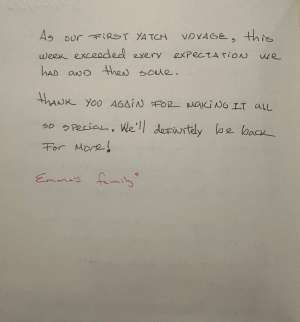 As our FIRST YATCH VOYAGE, this
week exceeded every EXPECTATION we
had AND then some.
THANK YOU AGAIN FOR MAKING IT all
so special. We'll definitely be back
For More!
Emma's family